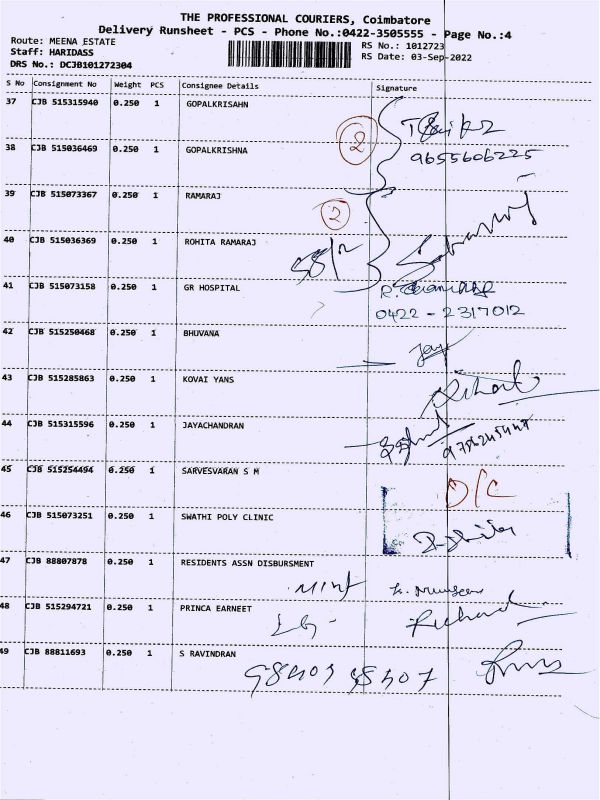 THE PROFESSIONAL COURIERS, Coimbatore
Delivery Runsheet - PCS - Phone No.:0422-3505555 - Page No.:4
Route: MEENA ESTATE
Staff: HARIDASS
DRS No.: DCJB101272304
RS No.: 1012723
RS Date: 03-Sep-2022
S No Consignment No Weight PCS Consignee Details Signature
37 CJB 515315940 0.250 1 GOPALKRISAHN
38 CJB 515036469 0.250 1 GOPALKRISHNA
2
9655606225
39 CJB 515073367 0.250 1 RAMARAJ
2
40 CJB 515036369 0.250 1 ROHITA RAMARAJ
41 CJB 515073158 0.250 1 GR HOSPITAL
0422 - 2317012
42 CJB 515250468 0.250 1 BHUVANA
43 CJB 515285863 0.250 1 KOVAI YANS
44 CJB 515315596 0.250 1 JAYACHANDRAN
45 CJB 515254494 0.250 1 SARVESVARAN S M
D/C
46 CJB 515073251 0.250 1 SWATHI POLY CLINIC
47 CJB 88807878 0.250 1 RESIDENTS ASSN DISBURSMENT
48 CJB 515294721 0.250 1 PRINCA EARNEET
Richard
49 CJB 88811693 0.250 1 S RAVINDRAN